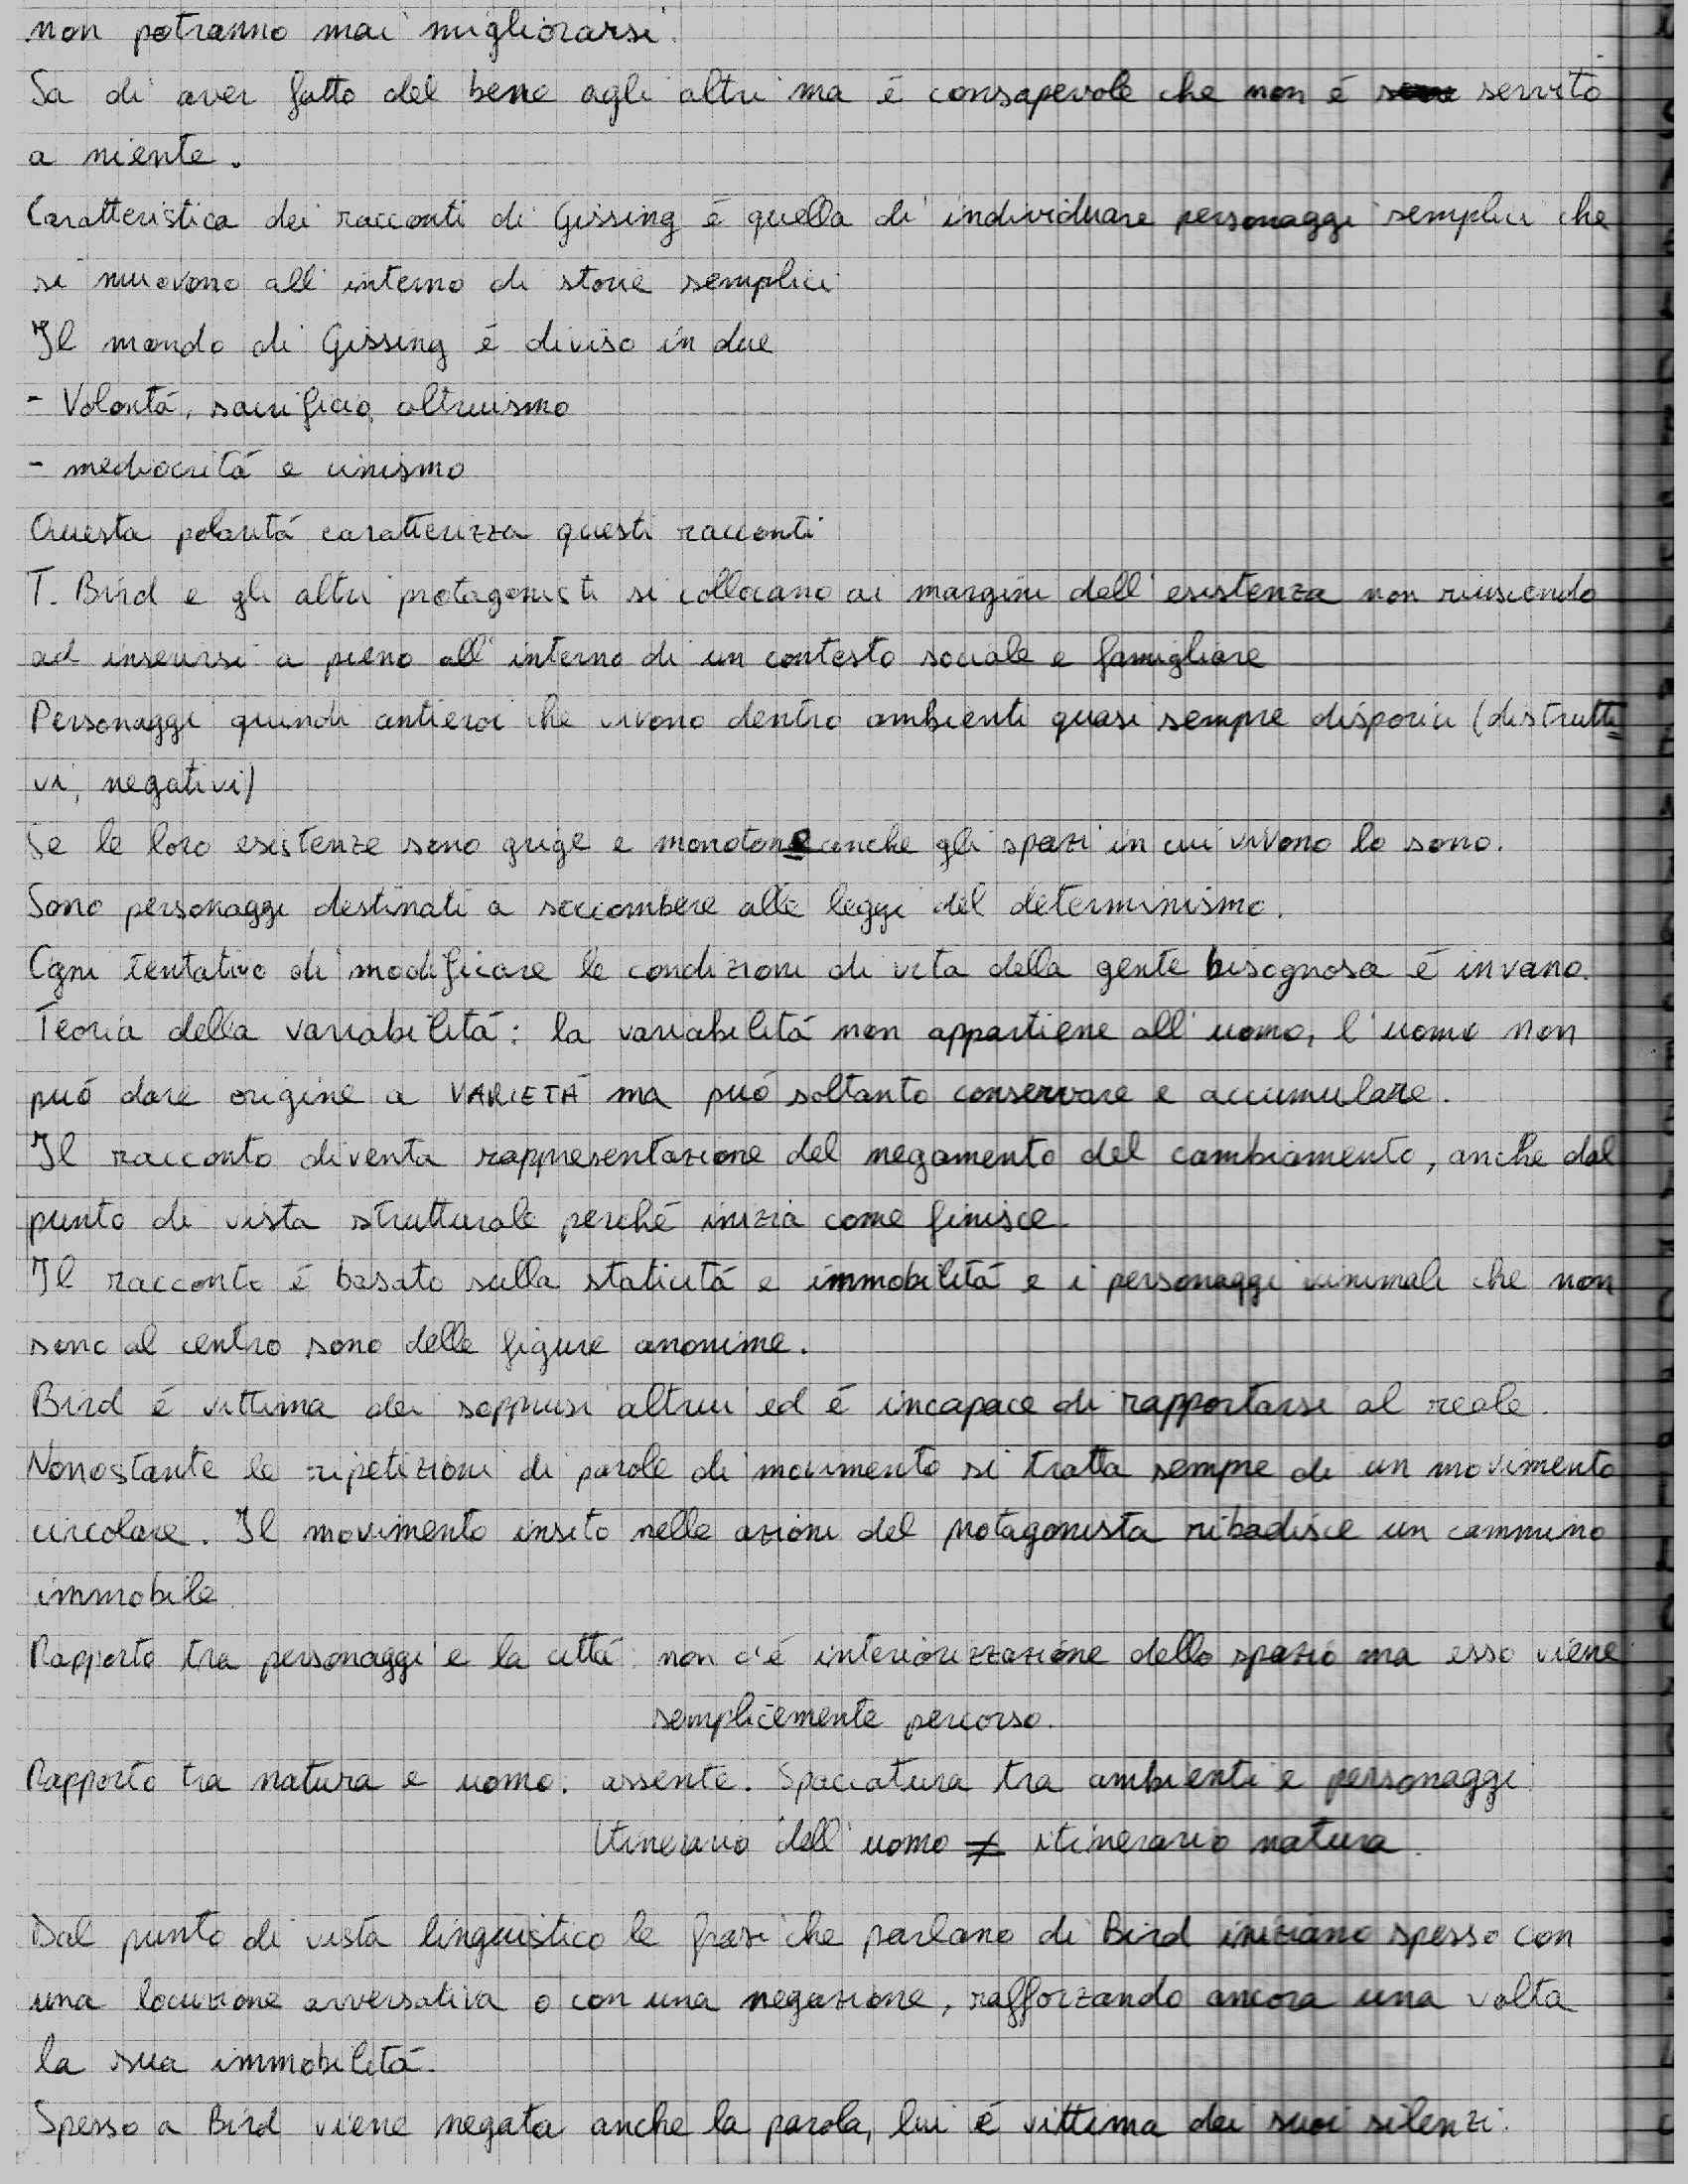 non potranno mai migliorarsi.
Sa di aver fatto del bene agli altri ma é consapevole che non é servito
a niente.
Caratteristica dei racconti di Gissing é quella di individuare personaggi semplici che
si muovono all'interno di storie semplici
Il mondo di Gissing é diviso in due
- Volontá, sacrificio, altruismo
- mediocritá e cinismo
Questa polaritá caratterizza questi racconti
T. Bird e gli altri protagonisti si collocano ai margini dell'esistenza non riuscendo
ad inserirsi a pieno all'interno di un contesto sociale e famigliare
Personaggi quindi antieroi che vivono dentro ambienti quasi sempre disforici (distrutti
vi, negativi)
Se le loro esistenze sono grige e monotone anche gli spazi in cui vivono lo sono.
Sono personaggi destinati a soccombere alle leggi del determinismo.
Ogni tentativo di modificare le condizioni di vita della gente bisognosa é invano.
Teoria della variabilitá: la variabilitá non appartiene all'uomo, l'uomo non
puó dare origine a VARIETÁ ma puó soltanto conservare e accumulare.
Il racconto diventa rappresentazione del negamento del cambiamento, anche dal
punto di vista strutturale perché inizia come finisce.
Il racconto é basato sulla staticitá e immobilitá e i personaggi minimali che non
sono al centro sono delle figure anonime.
Bird é vittima dei soprusi altrui ed é incapace di rapportarsi al reale.
Nonostante le ripetizioni di parole di movimento si tratta sempre di un movimento
circolare. Il movimento insito nelle azioni del protagonista ribadisce un cammino
immobile.
Rapporto tra personaggi e la cittá: non c'é interiorizzazione dello spazio ma esso viene
semplicemente percorso.
Rapporto tra natura e uomo: assente. Spaccatura tra ambienti e personaggi.
Itinerario dell'uomo ≠ itinerario natura.
Dal punto di vista linguistico le frasi che parlano di Bird iniziano spesso con
una locuzione avversativa o con una negazione, rafforzando ancora una volta
la sua immobilitá.
Spesso a Bird viene negata anche la parola, lui é vittima dei suoi silenzi.